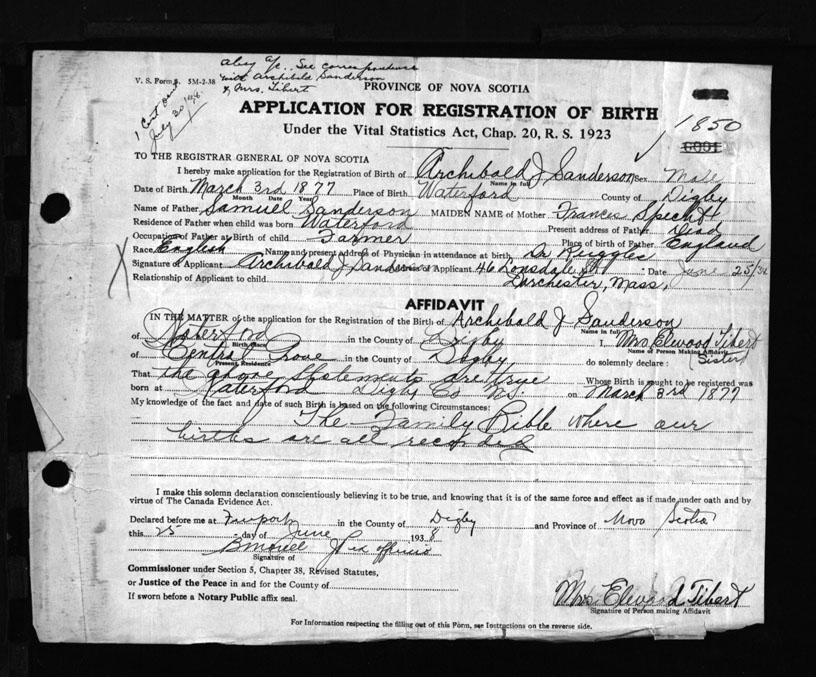 also a/c. See correspondence
with Archibald Sanderson
& Mrs. Tibert
V. S. Form 5M-2-38
1 Cert
July 30
PROVINCE OF NOVA SCOTIA
APPLICATION FOR REGISTRATION OF BIRTH
Under the Vital Statistics Act, Chap. 20, R. S. 1923
1850
TO THE REGISTRAR GENERAL OF NOVA SCOTIA
I hereby make application for the Registration of Birth of Archibald J Sanderson Sex Male
Name in full
Date of Birth March 3rd 1877 Place of Birth Waterford County of Digby
Month Date Year
Name of Father Samuel Sanderson MAIDEN NAME of Mother Frances Specht
Residence of Father when child was born Waterford Present address of Father Dead
Occupation of Father at Birth of child Farmer Place of birth of Father England
Race English Name and present address of Physician in attendance at birth, Dr Ruggles
Signature of Applicant Archibald J Sanderson of Applicant 46 Lonsdale St Date June 25/38
Relationship of Applicant to child Dorchester, Mass,
AFFIDAVIT
IN THE MATTER of the application for the Registration of the Birth of Archibald J Sanderson
Name in full
of Waterford in the County of Digby I, Mrs Elwood Tibert
Birth Place Name of Person Making Affidavit
(Sister)
of Central Grove in the County of Digby do solemnly declare:
Present Residence
That the above statements are true Whose Birth is sought to be registered was
born at Waterford Digby Co NS on March 3rd 1877
My knowledge of the fact and date of such Birth is based on the following Circumstances:
The Family Bible where our
births are all recorded
I make this solemn declaration conscientiously believing it to be true, and knowing that it is of the same force and effect as if made under oath and by
virtue of The Canada Evidence Act.
Declared before me at Freeport in the County of Digby and Province of Nova Scotia
this 25 day of June 1938
J P ex officio
Signature of
Commissioner under Section 5, Chapter 38, Revised Statutes,
or Justice of the Peace in and for the County of
If sworn before a Notary Public affix seal.
Mrs Elwood Tibert
Signature of Person making Affidavit
For Information respecting the filling out of this Form, see Instructions on the reverse side.